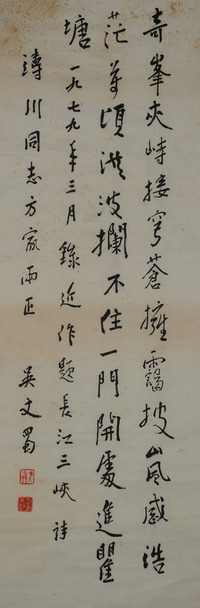 奇峯夾峙接穹蒼擁靄披嵐感浩
茫萬頃洪波攔不住一門開處進瞿
塘一九七九年三月錄近作題長江三峽詩
濤川同志方家兩正
吳丈蜀